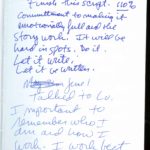 Finish this script. 110%
Committment to making it
emotionally full and the
story work. It will be
hard in spots. Do it.
Let it write.
Let it be written.
June 1
Talked to Lu.
Important to
remember who I
am and how I
work. I work best